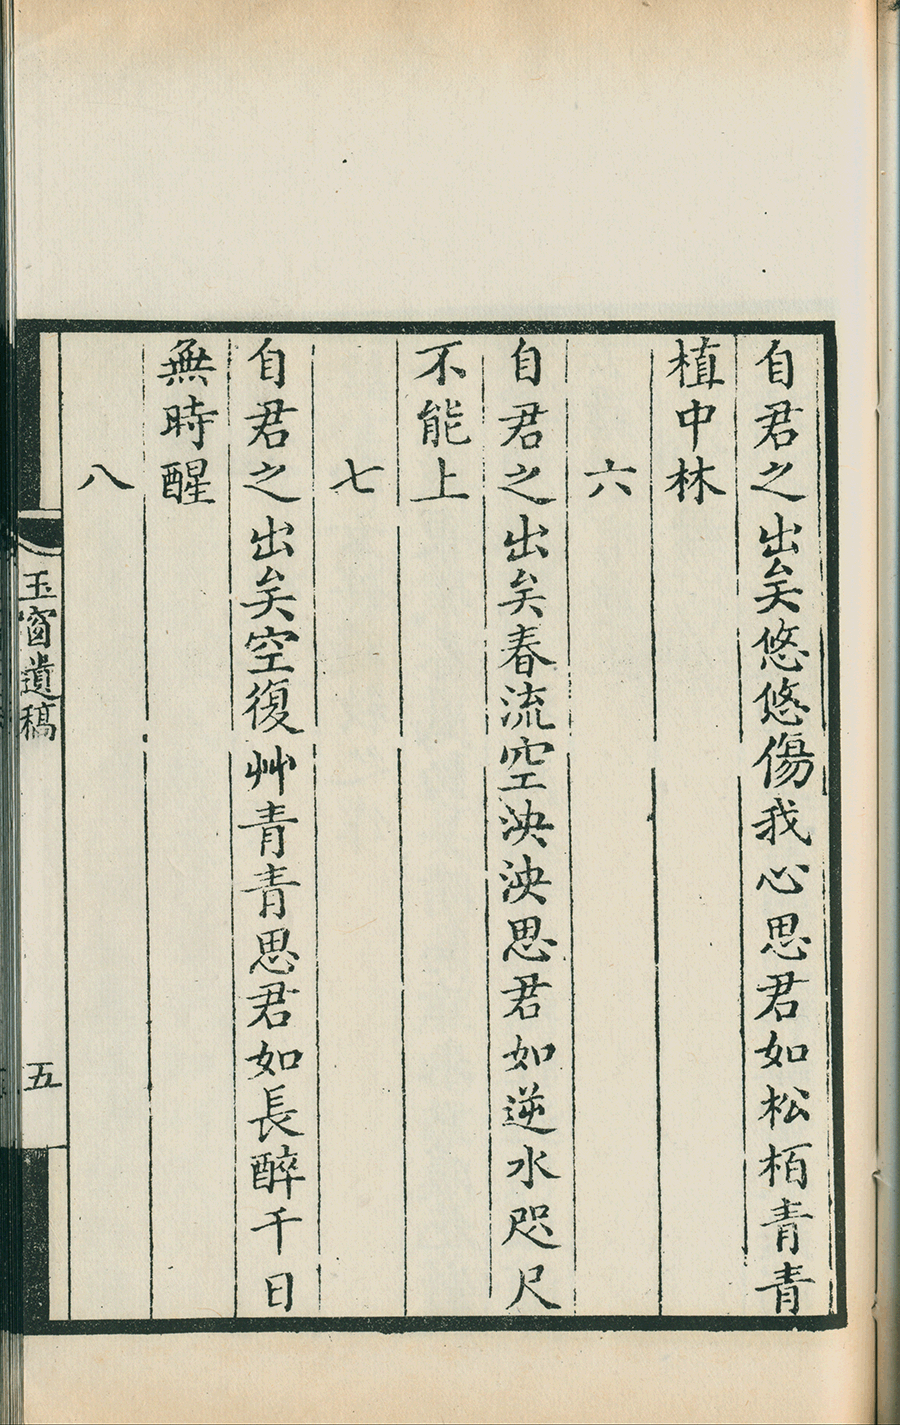 自君之出矣悠悠傷我心思君如松栢青青
植中林
六
自君之出矣春流空泱泱思君如逆水咫尺
不能上
七
自君之出矣空復艸青青思君如長醉千日
無時醒
八
玉窗遺稿
五